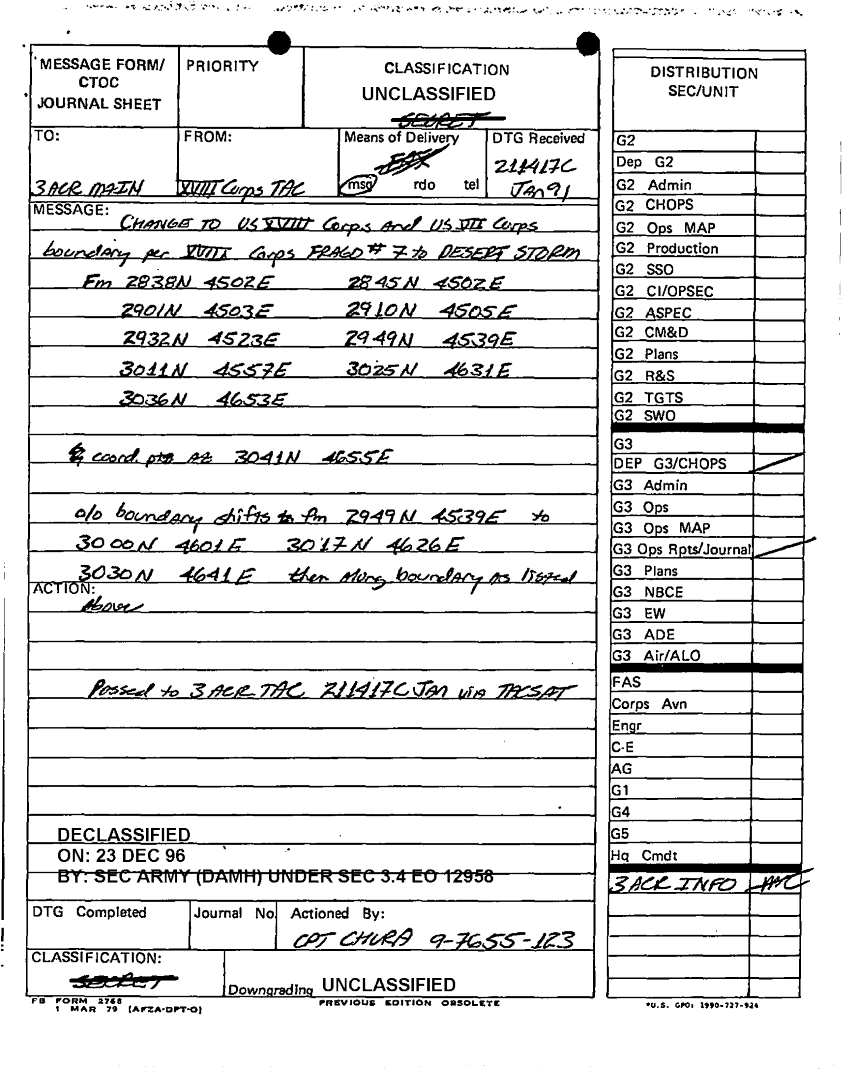 MESSAGE FORM/ CTOC JOURNAL SHEET
PRIORITY
CLASSIFICATION
UNCLASSIFIED
SECRET
TO:
3 ACR MAIN
FROM:
XVIII Corps TAC
Means of Delivery
FAX
msg rdo tel
DTG Received
211417C
Jan 91
MESSAGE:
CHANGE TO US XVIII Corps and US VII Corps
boundary per XVIII Corps FRAGO # 7 to DESERT STORM
Fm 2838N 4502E 2845N 4502E
2901N 4503E 2910N 4505E
2932N 4523E 2949N 4539E
3011N 4557E 3025N 4631E
3036N 4653E
coord. pts at 3041N 4655E
o/o boundary shifts to fm 2949N 4539E to
3000N 4601E 3017N 4626E
3030N 4641E then along boundary as listed
ACTION:
Above
Passed to 3 ACR TAC 211417C JAN via TACSAT
DECLASSIFIED
ON: 23 DEC 96
BY: SEC ARMY (DAMH) UNDER SEC 3.4 EO 12958
DTG Completed
Journal No.
Actioned By:
CPT CHURA 9-7655-123
CLASSIFICATION:
SECRET
Downgrading UNCLASSIFIED
FB FORM 2768
1 MAR 79 (AFZA-DPT-O)
PREVIOUS EDITION OBSOLETE
DISTRIBUTION
SEC/UNIT
G2
Dep G2
G2 Admin
G2 CHOPS
G2 Ops MAP
G2 Production
G2 SSO
G2 CI/OPSEC
G2 ASPEC
G2 CM&D
G2 Plans
G2 R&S
G2 TGTS
G2 SWO
G3
DEP G3/CHOPS
G3 Admin
G3 Ops
G3 Ops MAP
G3 Ops Rpts/Journal
G3 Plans
G3 NBCE
G3 EW
G3 ADE
G3 Air/ALO
FAS
Corps Avn
Engr
C-E
AG
G1
G4
G5
Hq Cmdt
3 ACR INFO
*U.S. GPO: 1990-727-924